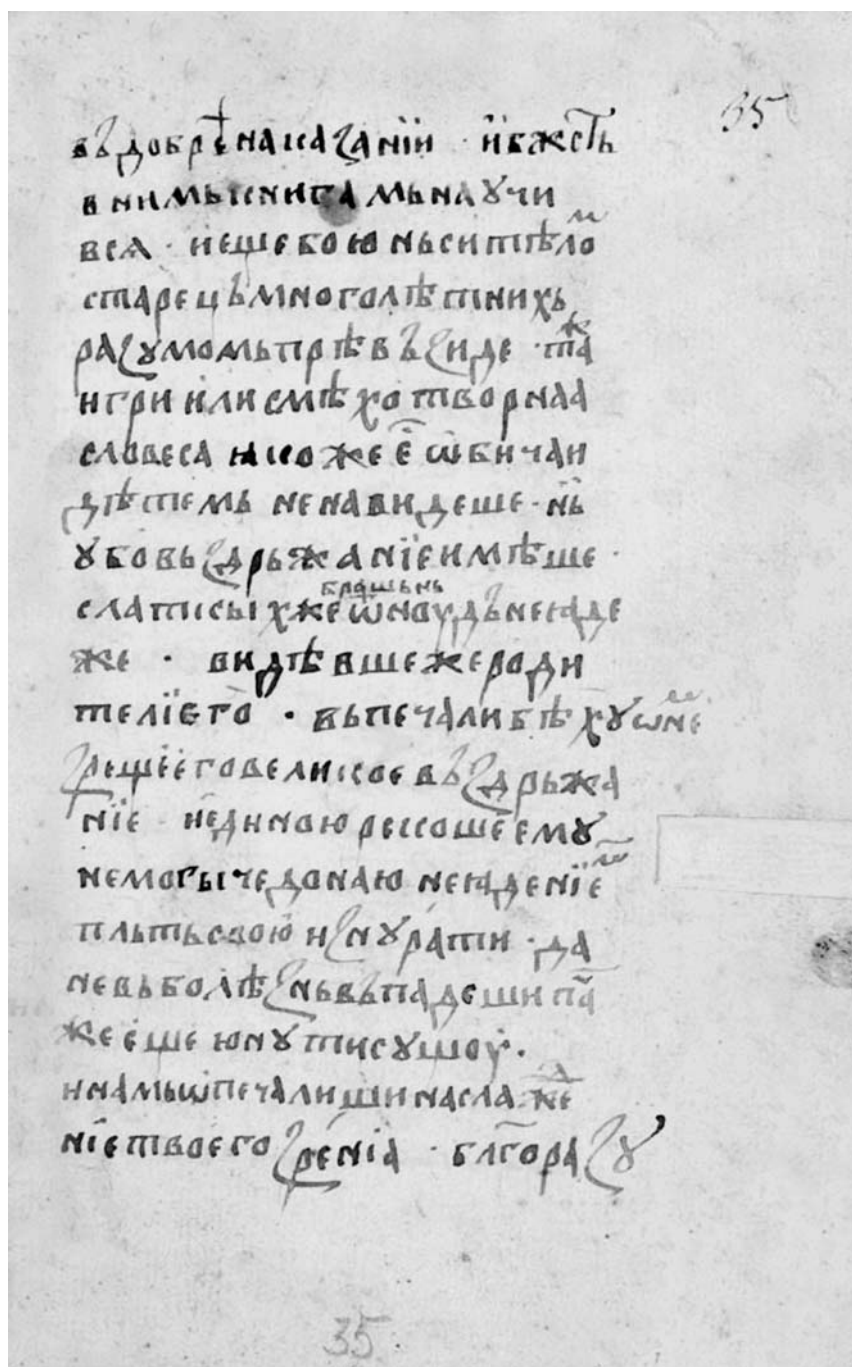 35
въ добрѣ наказанїи · и бжⷭ҇тъ
внимь книгамь научи
всѧ · и еще бо юнь си тѣлоⷨ
старець многолѣтнихь
разумомь прѣвъзиде · таⷤ
игри или смѣхотворнаа
словеса ꙗкоже е҃ ѡбичаи
дѣтемь ненавидеше · нь
убо вьздрьжанїе имѣше ·
слаптисыхже брашьнь ѿноудъ не ꙗде
же · видѣвше же роди
телїе го · вь печали бѣху ѡ неⷨ
зреще его великое въздрьжа
нїе · и единою рекоше ему
не могы чедо наю неꙗденїеⷨ
пльть свою изнурати · да
не вь болѣзнь въпадеши па҃
же еще юну ти сушоу ·
и намь ѿпечалиши наслаⷤе
нїе твоего зренїа · блг҃оразу
35